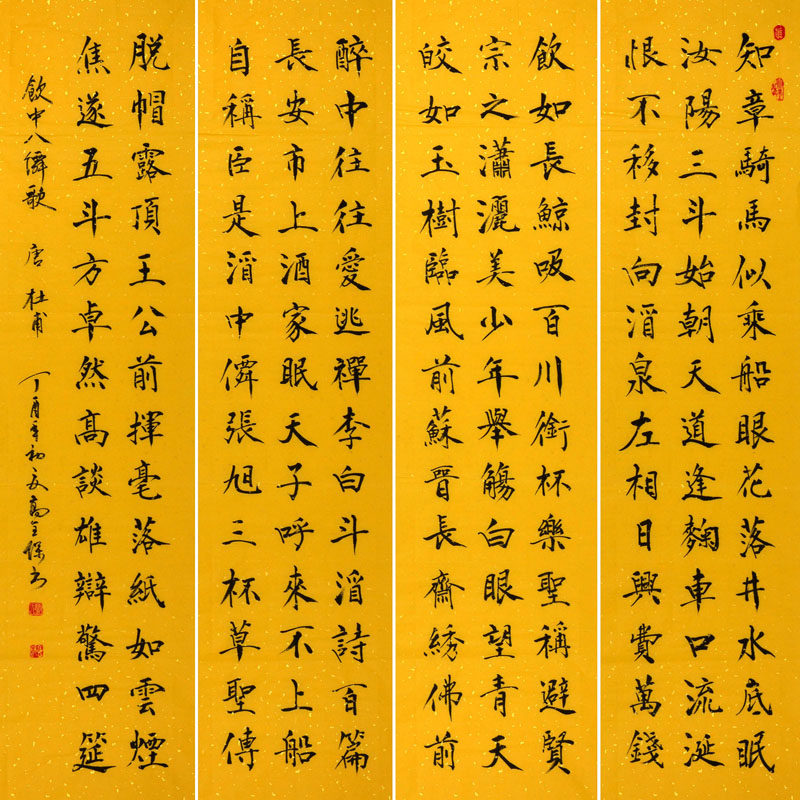 知章騎馬似乘船眼花落井水底眠
汝陽三斗始朝天道逢麴車口流涎
恨不移封向酒泉左相日興費萬錢
飲如長鯨吸百川銜杯樂聖稱避賢
宗之瀟灑美少年舉觴白眼望青天
皎如玉樹臨風前蘇晉長齋綉佛前
醉中往往愛逃禪李白斗酒詩百篇
長安市上酒家眠天子呼來不上船
自稱臣是酒中僊張旭三杯草聖傳
脱帽露頂王公前揮毫落紙如雲煙
焦遂五斗方卓然高談雄辯驚四筵
飲中八僊歌 唐 杜甫 丁酉年初夏高全